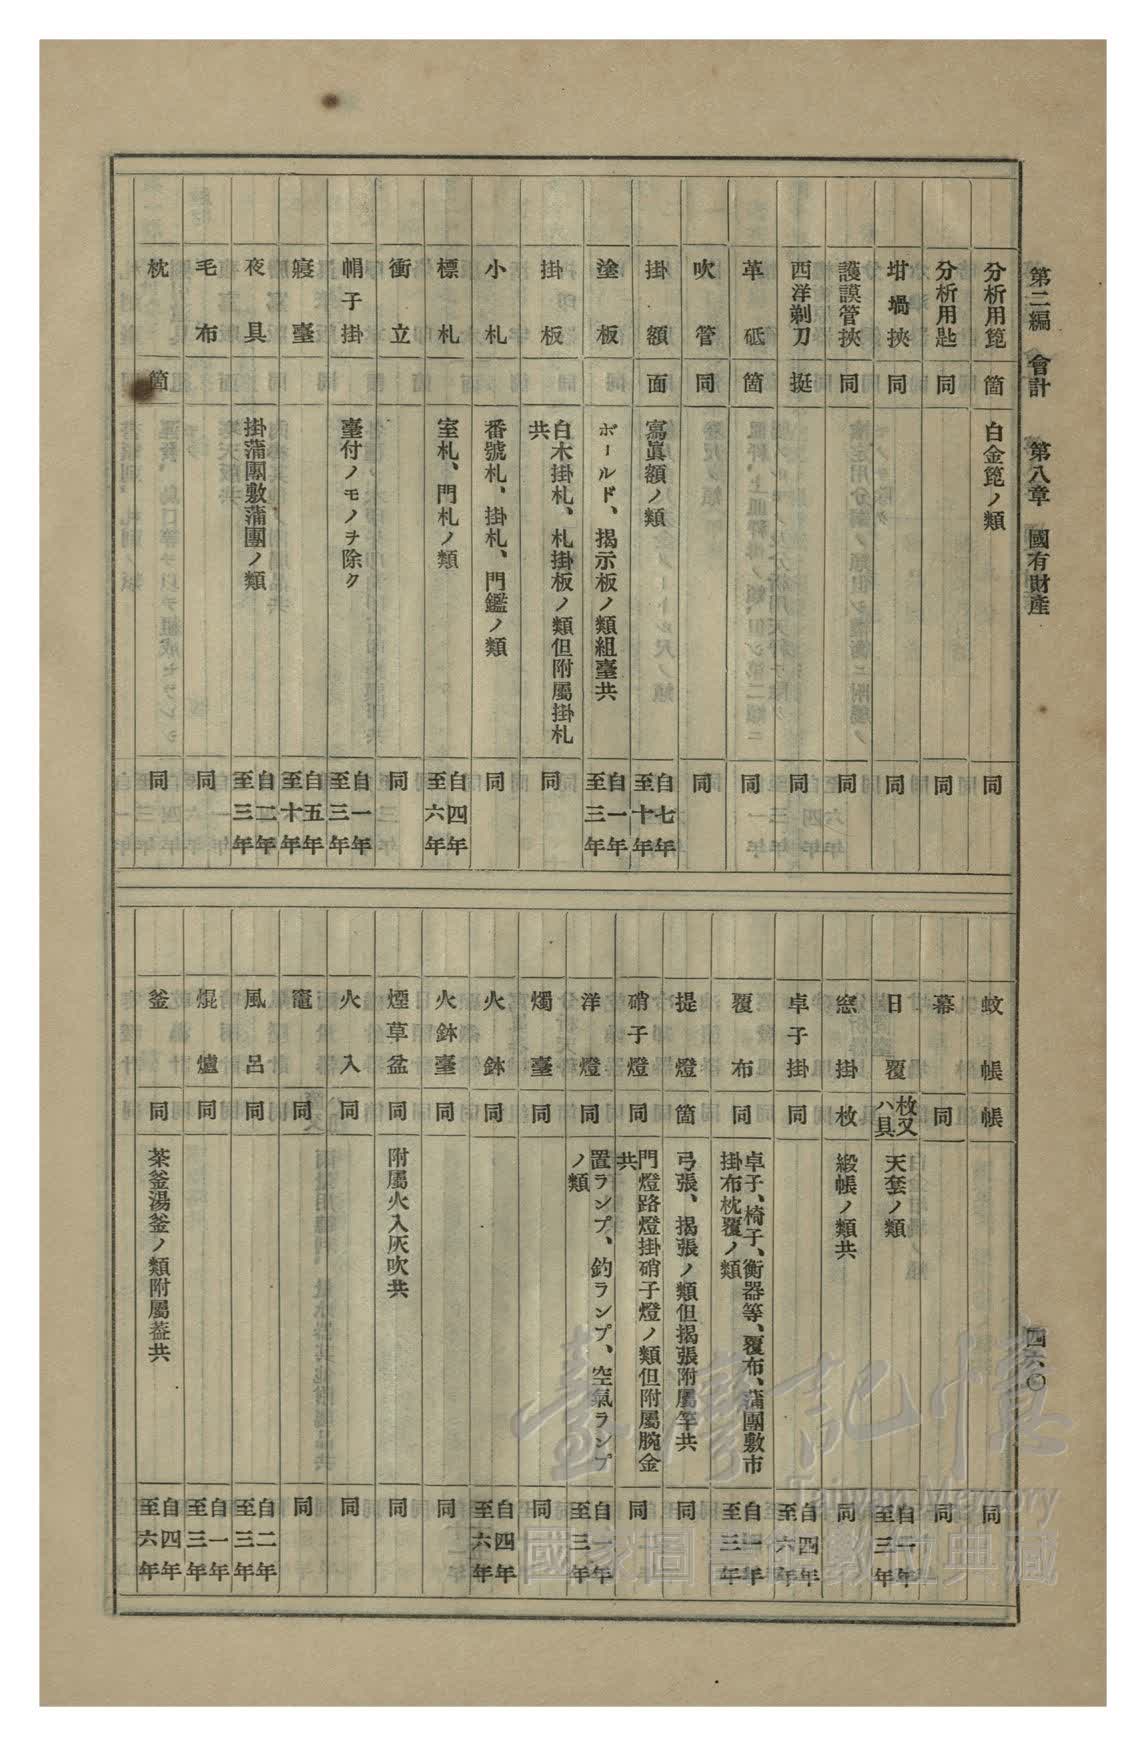 第二編 會計 第八章 國有財產
四六〇
分析用箆 箇 白金箆ノ類 同
分析用匙 同 同
坩堝挾 同 同
護謨管挾 同 同
西洋剃刀 挺 同
革砥 箇 同
吹管 同 同
掛額 面 寫眞額ノ類 自七年至十年
塗板 ボールド、揭示板ノ類組臺共 自一年至三年
掛板 白木掛札、札掛板ノ類但附屬掛札共 同
小札 番號札、掛札、門鑑ノ類 同
標札 室札、門札ノ類 自四年至六年
衝立 同
帽子掛 臺付ノモノヲ除ク 自一年至三年
寢臺 自五年至十年
夜具 掛蒲團敷蒲團ノ類 自二年至三年
毛布 同
枕 箇 同
蚊帳 帳 同
幕 同 同
日覆 枚又ハ具 天套ノ類 自一年至三年
窓掛 枚 緞帳ノ類共 同
卓子掛 同 自四年至六年
覆布 同 卓子、椅子、衡器等、覆布、蒲團敷布掛布枕覆ノ類 自一年至三年
提燈 箇 弓張、揭張ノ類但揭張附屬竿共 同
硝子燈 同 門燈路燈掛硝子燈ノ類但附屬腕金共 同
洋燈 同 置ランプ、釣ランプ、空氣ランプノ類 自一年至三年
燭臺 同 同
火鉢 同 自四年至六年
火鉢臺 同 同
煙草盆 同 附屬火入灰吹共 同
火入 同 同
竈 同 同
風呂 同 自二年至三年
焜爐 同 自一年至三年
釜 同 茶釜湯釜ノ類附屬葢共 自四年至六年
臺灣記憶
Taiwan Memory
國家圖書館數位典藏